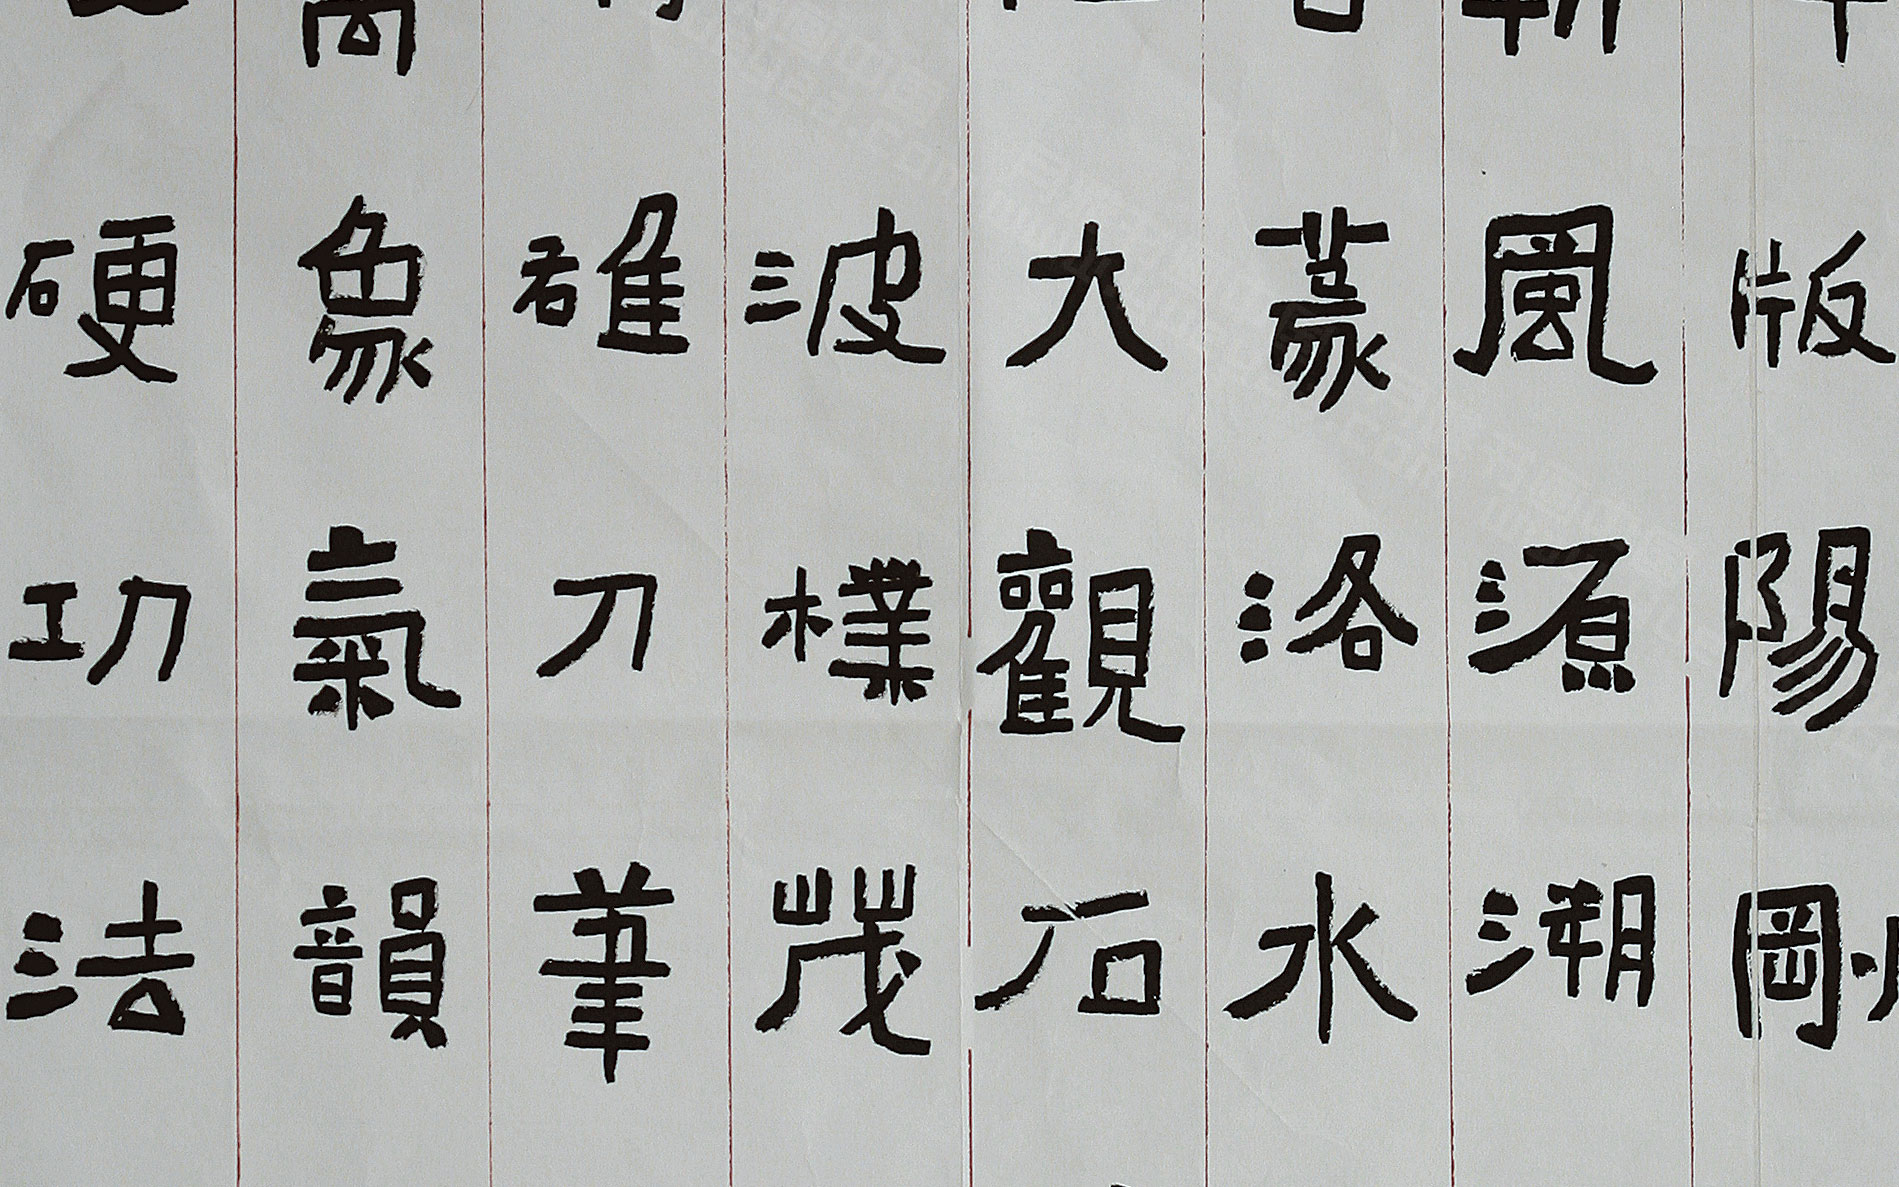 版陽剛
風源溯
洛水
大觀石
波樸茂
雄刀筆
萬象氣韻
硬功法